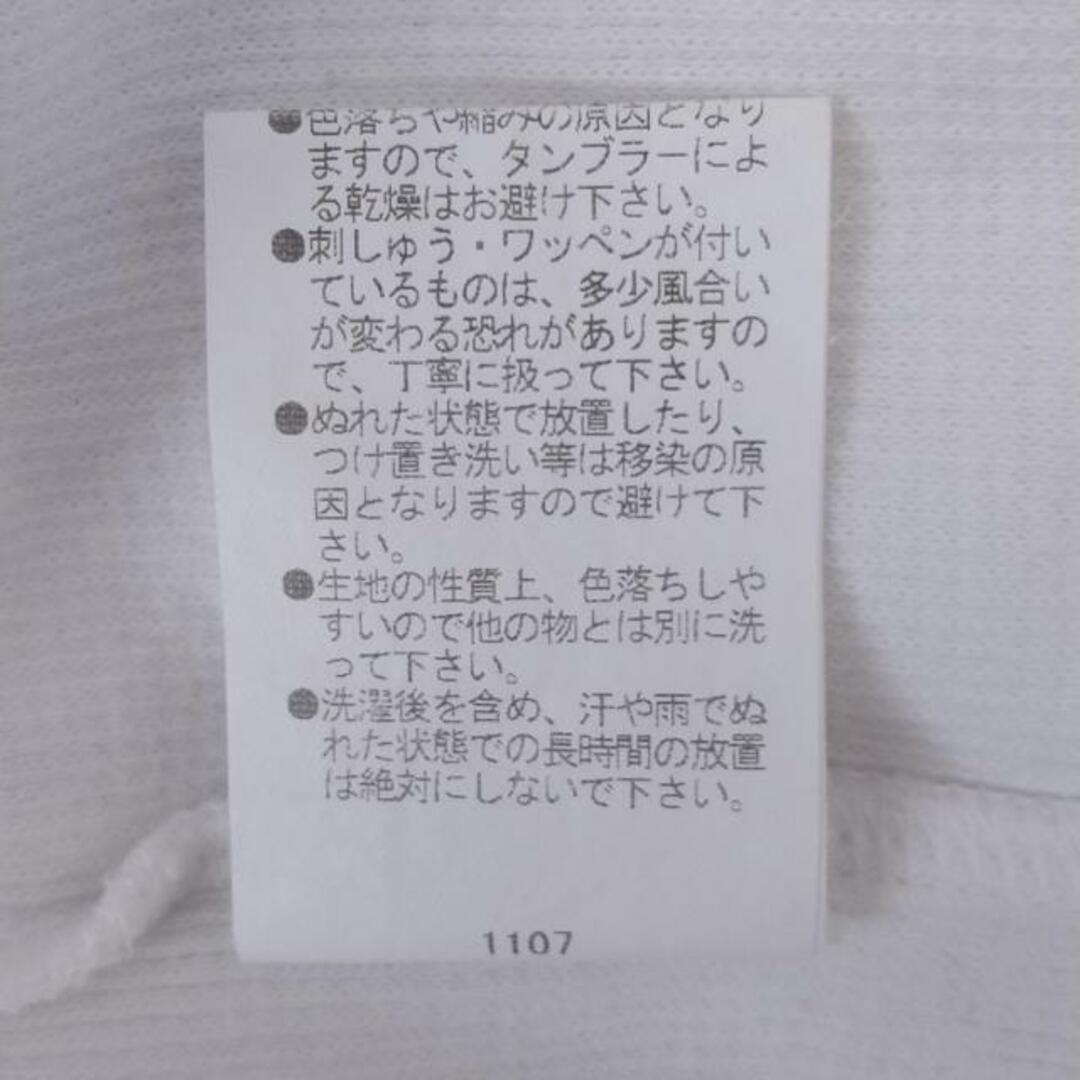 ●色落ちや縮みの原因となり
ますので、タンブラーによ
る乾燥はお避け下さい。
●刺しゅう・ワッペンが付い
ているものは、多少風合い
が変わる恐れがありますの
で、丁寧に扱って下さい。
●ぬれた状態で放置したり、
つけ置き洗い等は移染の原
因となりますので避けて下
さい。
●生地の性質上、色落ちしや
すいので他の物とは別に洗
って下さい。
●洗濯後を含め、汗や雨でぬ
れた状態での長時間の放置
は絶対にしないで下さい。
1107